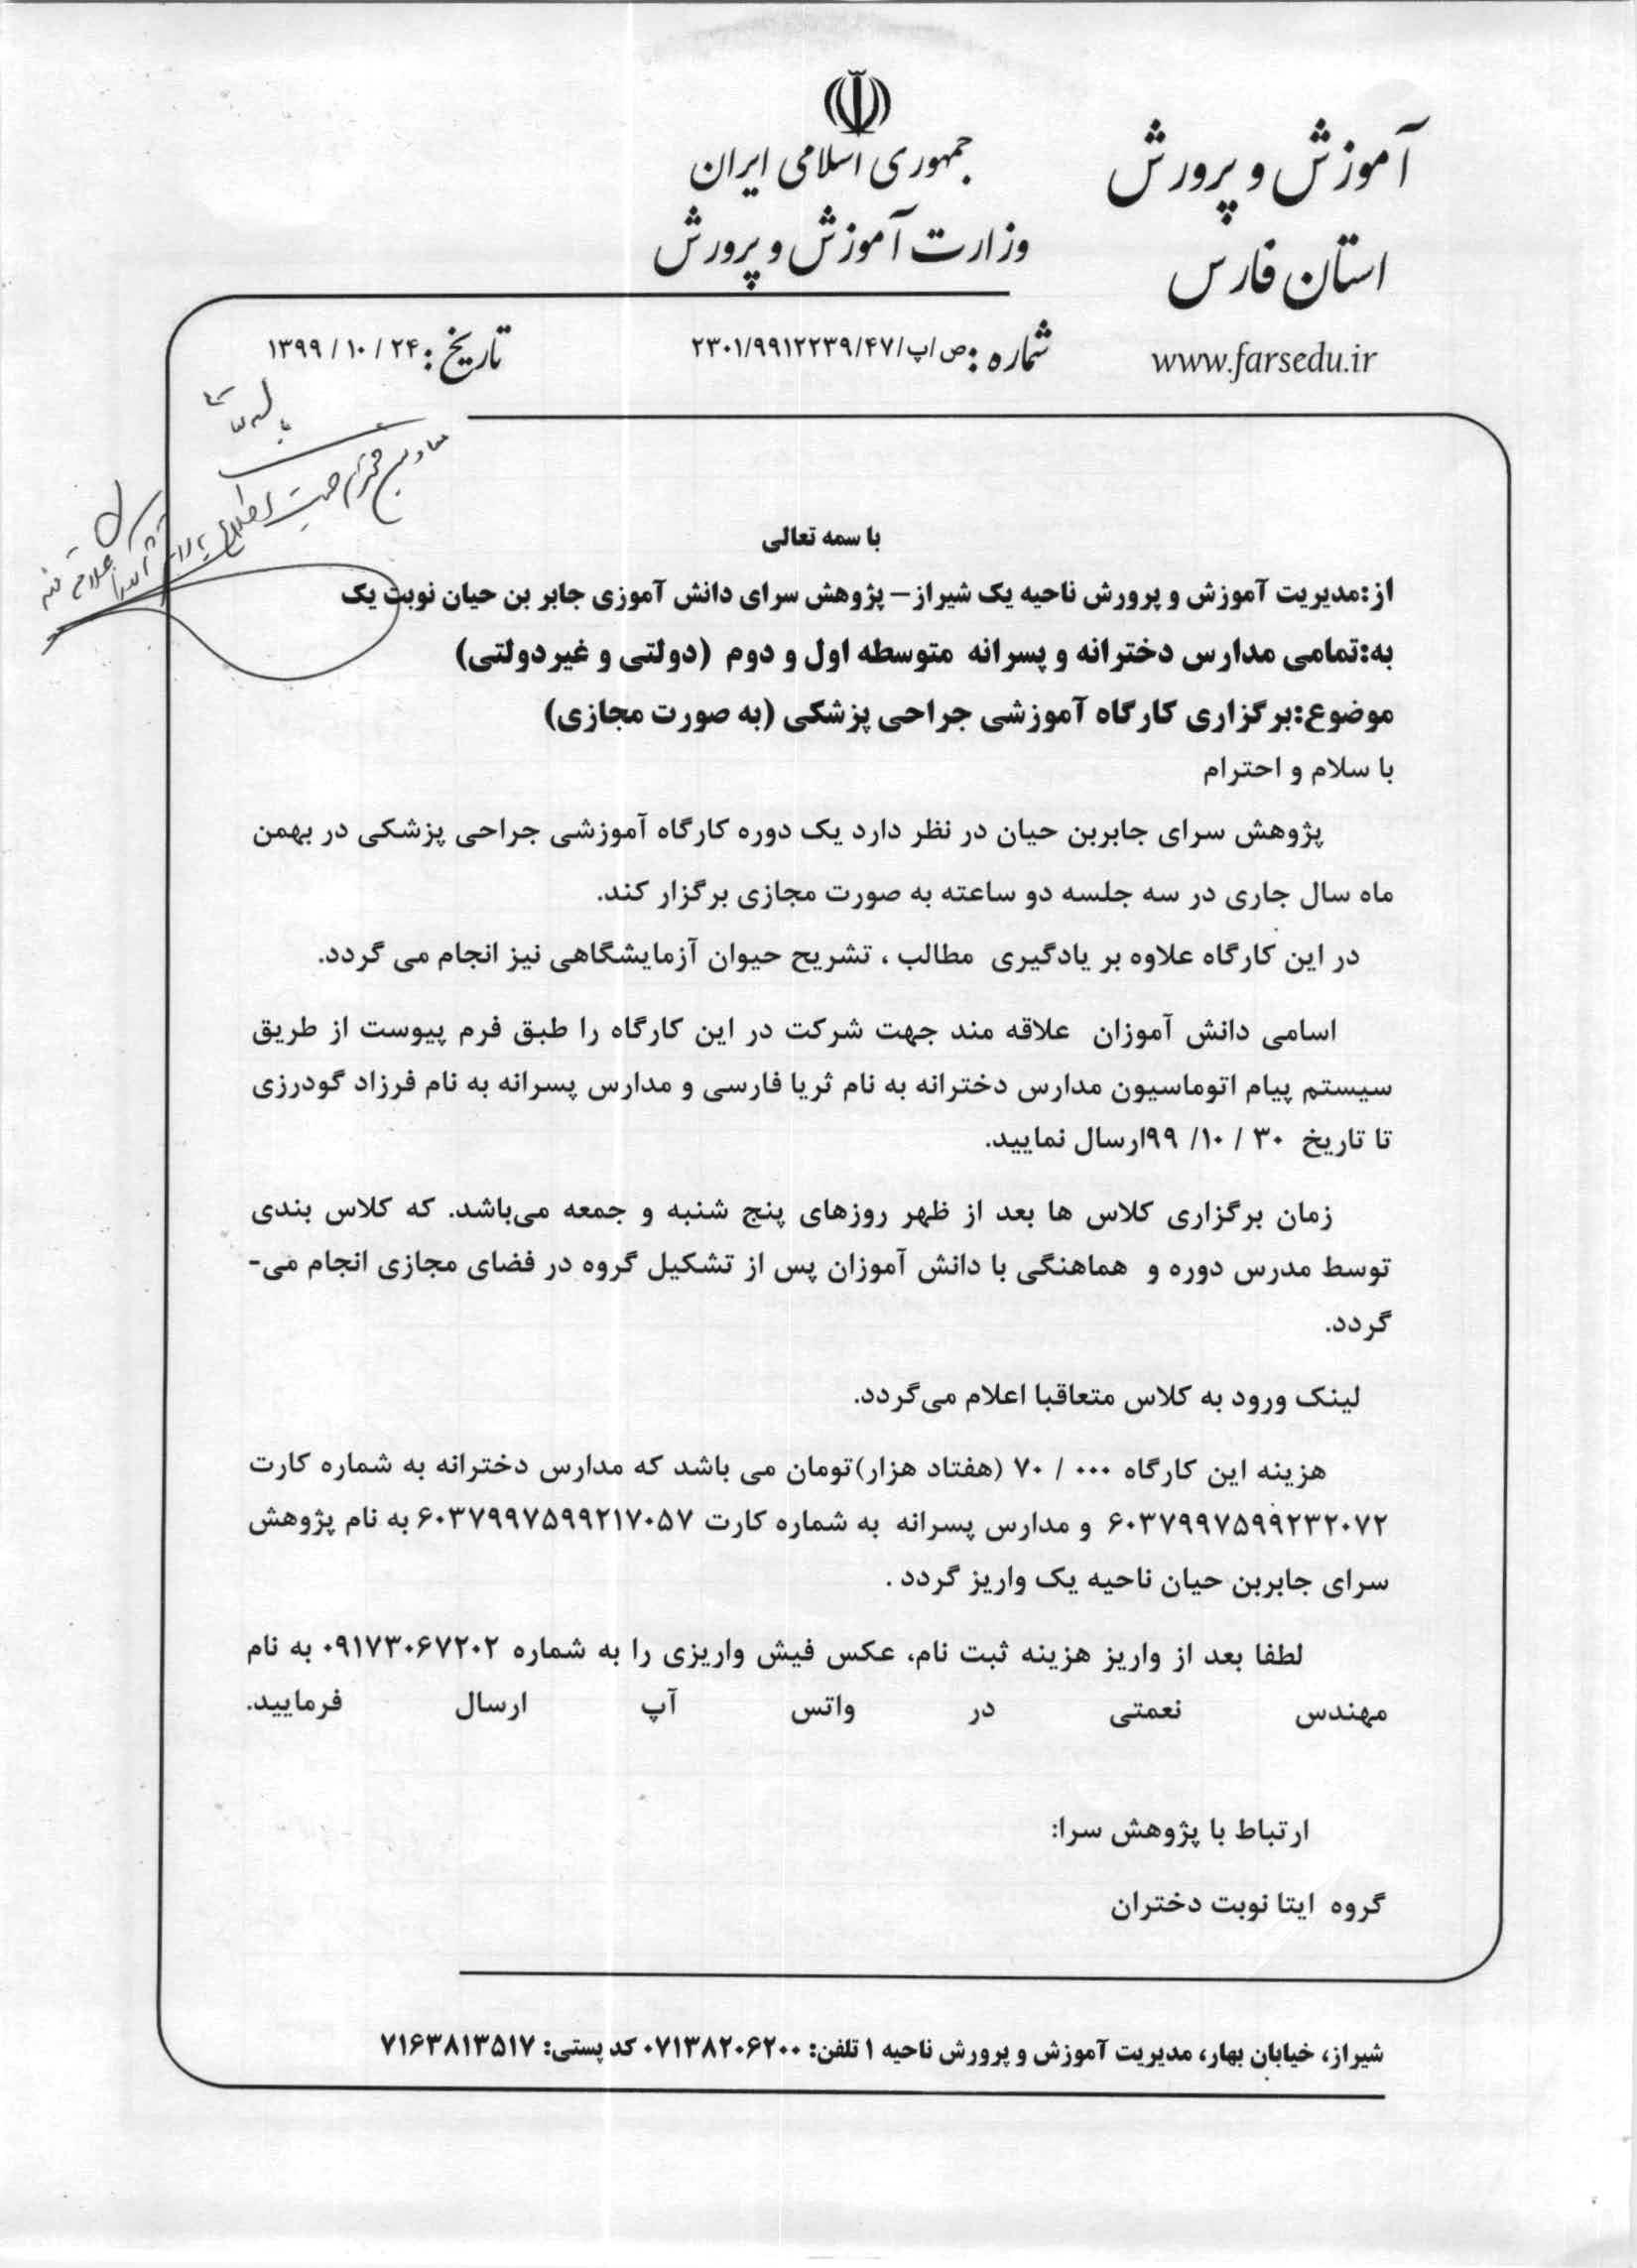 جمهوری اسلامی ایران
وزارت آموزش و پرورش
آموزش و پرورش
استان فارس
www.farsedu.ir
شماره: ص/پ/۲۳۰۱/۹۹۱۲۲۳۹/۴۷
تاریخ: ۱۳۹۹/۱۰/۲۴
با سمه تعالی
از:مدیریت آموزش و پرورش ناحیه یک شیراز– پژوهش سرای دانش آموزی جابر بن حیان نوبت یک
به:تمامی مدارس دخترانه و پسرانه متوسطه اول و دوم (دولتی و غیردولتی)
موضوع:برگزاری کارگاه آموزشی جراحی پزشکی (به صورت مجازی)
با سلام و احترام
پژوهش سرای جابربن حیان در نظر دارد یک دوره کارگاه آموزشی جراحی پزشکی در بهمن
ماه سال جاری در سه جلسه دو ساعته به صورت مجازی برگزار کند.
در این کارگاه علاوه بر یادگیری مطالب ، تشریح حیوان آزمایشگاهی نیز انجام می گردد.
اسامی دانش آموزان علاقه مند جهت شرکت در این کارگاه را طبق فرم پیوست از طریق
سیستم پیام اتوماسیون مدارس دخترانه به نام ثریا فارسی و مدارس پسرانه به نام فرزاد گودرزی
تا تاریخ ۳۰ / ۱۰/ ۹۹ارسال نمایید.
زمان برگزاری کلاس ها بعد از ظهر روزهای پنج شنبه و جمعه می‌باشد. که کلاس بندی
توسط مدرس دوره و هماهنگی با دانش آموزان پس از تشکیل گروه در فضای مجازی انجام می-
گردد.
لینک ورود به کلاس متعاقبا اعلام می‌گردد.
هزینه این کارگاه ۰۰۰ / ۷۰ (هفتاد هزار)تومان می باشد که مدارس دخترانه به شماره کارت
۶۰۳۷۹۹۷۵۹۹۲۳۲۰۷۲ و مدارس پسرانه به شماره کارت ۶۰۳۷۹۹۷۵۹۹۲۱۷۰۵۷ به نام پژوهش
سرای جابربن حیان ناحیه یک واریز گردد .
لطفا بعد از واریز هزینه ثبت نام، عکس فیش واریزی را به شماره ۰۹۱۷۳۰۶۷۲۰۲ به نام
مهندس نعمتی در واتس آپ ارسال فرمایید.
ارتباط با پژوهش سرا:
گروه ایتا نوبت دختران
شیراز، خیابان بهار، مدیریت آموزش و پرورش ناحیه ۱ تلفن: ۰۷۱۳۸۲۰۶۲۰۰ کد پستی: ۷۱۶۳۸۱۳۵۱۷